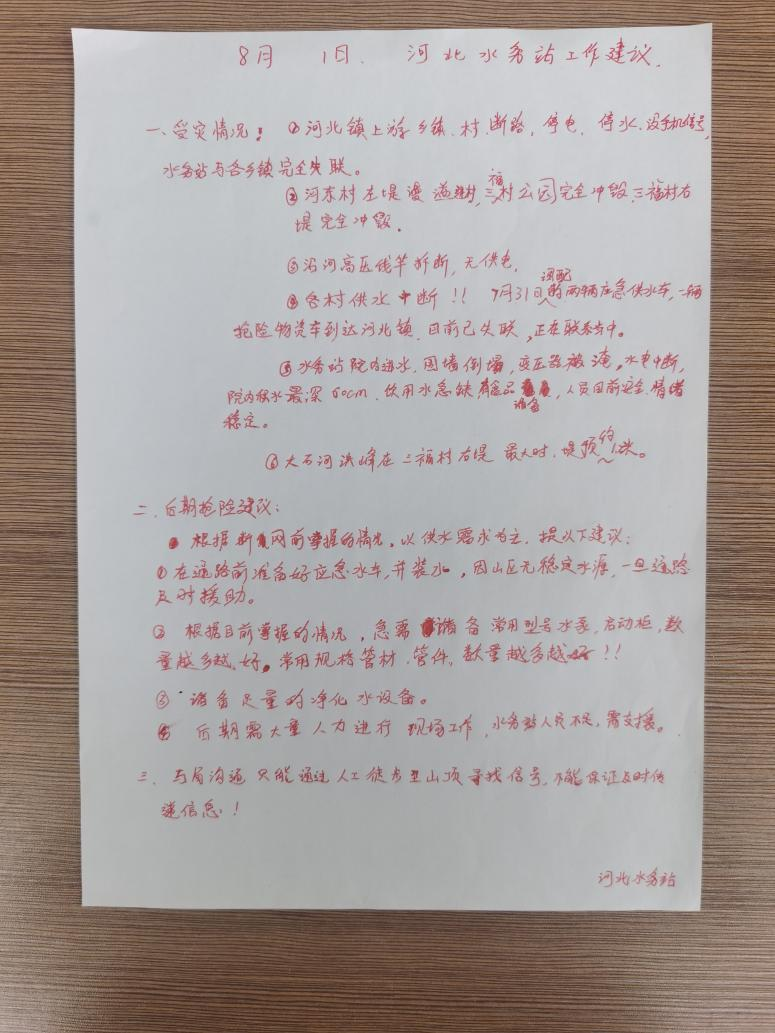 8月 1日、 河北水务站工作建议.
一、受灾情况: ①河北镇上游乡镇、村、断路、停电、停水、没手机信号,
水务站与各乡镇完全失联。
②河东村左堤漫溢进村, 三福村公园完全冲毁, 三福村右
堤完全冲毁.
③沿河高压线竿折断, 无供电,
④各村供水中断!! 7月31日调配的两辆应急供水车, 一辆
抢险物资车到达河北镇. 目前已失联, 正在联系中。
⑤水务站院内进水, 围墙倒塌, 变压器被淹, 水电中断,
院内积水最深60cm, 饮用水急缺 有食品储备, 人员目前安全、情绪
稳定。
⑥大石河洪峰在三福村右堤最大时, 堤顶约1米。
二、后期抢险建议:
根据断网前掌握的情况, 以供水需求为主, 提以下建议:
①在通路前准备好应急水车, 并装水, 因山区无稳定水源, 一旦通路
及时援助。
② 根据目前掌握的情况, 急需储备常用型号水泵, 启动柜, 数
量越多越好. 常用规格管材、管件, 数量越多越好!!
③ 储备足量的净化水设备。
④ 后期需大量人力进行现场工作, 水务站人员不足, 需支援。
三、与局沟通只能通过人工徒步至山顶寻找信号, 不能保证及时传
递信息!
河北水务站